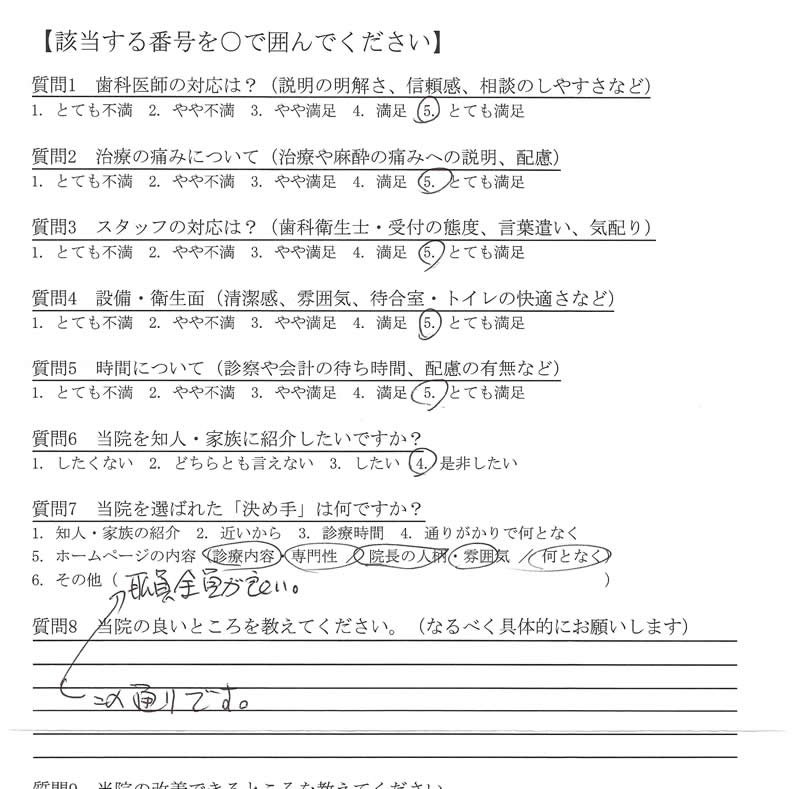 【該当する番号を〇で囲んでください】
質問1　歯科医師の対応は？（説明の明解さ、信頼感、相談のしやすさなど）
1. とても不満　2. やや不満　3. やや満足　4. 満足　5. とても満足
質問2　治療の痛みについて（治療や麻酔の痛みへの説明、配慮）
1. とても不満　2. やや不満　3. やや満足　4. 満足　5. とても満足
質問3　スタッフの対応は？（歯科衛生士・受付の態度、言葉遣い、気配り）
1. とても不満　2. やや不満　3. やや満足　4. 満足　5. とても満足
質問4　設備・衛生面（清潔感、雰囲気、待合室・トイレの快適さなど）
1. とても不満　2. やや不満　3. やや満足　4. 満足　5. とても満足
質問5　時間について（診察や会計の待ち時間、配慮の有無など）
1. とても不満　2. やや不満　3. やや満足　4. 満足　5. とても満足
質問6　当院を知人・家族に紹介したいですか？
1. したくない　2. どちらとも言えない　3. したい　4. 是非したい
質問7　当院を選ばれた「決め手」は何ですか？
1. 知人・家族の紹介　2. 近いから　3. 診療時間　4. 通りがかりで何となく
5. ホームページの内容（診療内容・専門性／院長の人柄・雰囲気／何となく）
6. その他（職員全員が良い。）
質問8　当院の良いところを教えてください。（なるべく具体的にお願いします）
この通りです。
質問9　当院の改善できるところを教えてください